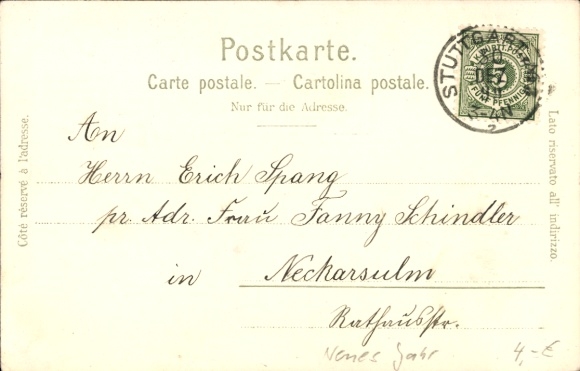 Postkarte.
Carte postale. — Cartolina postale.
Nur für die Adresse.
Côté réservé à l'adresse.
Lato riservato all' indirizzo.
STUTTGART
DEZ
K. WÜRTT. POST
5
FÜNF PFENNIG
2
An
Herrn Erich Spang
pr. Adr. Frau Fanny Schindler
in Neckarsulm
Rathausstr.
Neues Jahr 4,-€